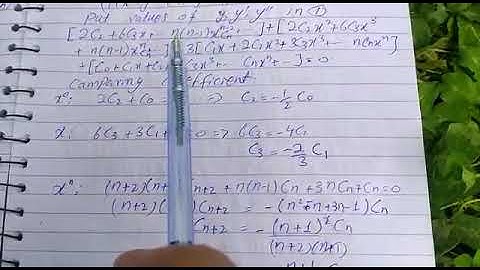 Put values of y, y', y'' in ①
[2C₂ + 6C₃x + -- n(n-1)xⁿ⁻²Cₙ + -- ] + [2C₂x² + 6C₃x³
+ n(n-1)xⁿCₙ -- ] 3[C₁x + 2C₂x² + 3C₃x³ + -- nCₙxⁿ]
+ [C₀ + C₁x + C₂ Cₙxⁿ + -- ] = 0
Camparing coefficient
x⁰: 2C₂ + C₀ = ⇒ C₂ = -1/2 C₀
x: 6C₃ + 3C₁ + = 0 ⇒ 6C₃ = -4C₁
C₃ = -2/3 C₁
xⁿ: (n+2)(n+ Cₙ₊₂ + n(n-1)Cₙ + 3nCₙ + Cₙ = 0
(n+2)( )Cₙ₊₂ = -(n²-n+3n-1)Cₙ
Cₙ₊₂ = -(n+1)² Cₙ
(n+2)(n+1)
n+1 C